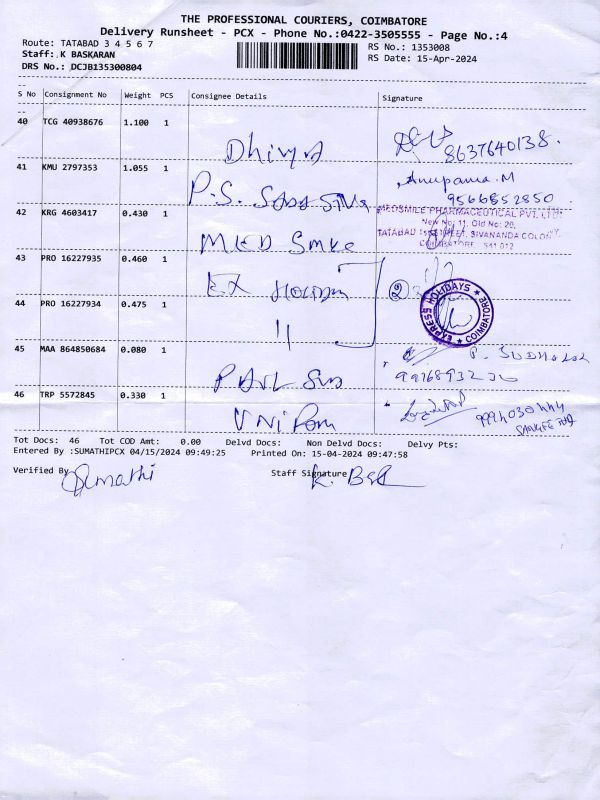 THE PROFESSIONAL COURIERS, COIMBATORE
Delivery Runsheet - PCX - Phone No.:0422-3505555 - Page No.:4
Route: TATABAD 3 4 5 6 7
RS No.: 1353008
Staff: K BASKARAN
RS Date: 15-Apr-2024
DRS No.: DCJB135300804
S No Consignment No Weight PCS Consignee Details Signature
40 TCG 40938676 1.100 1 Dhivya
8637640138.
41 KMU 2797353 1.055 1 P.S.
Anupama.M
9566852850
42 KRG 4603417 0.430 1 MED Smile
MEDSMILE PHARMACEUTICAL PVT. LTD
New No: 11, Old No: 20,
TATABAD STREET, SIVANANDA COLONY,
COIMBATORE - 641 012
43 PRO 16227935 0.460 1 EX Holiday
2
EXPRESS HOLIDAYS ★ COIMBATORE ★
44 PRO 16227934 0.475 1 11
45 MAA 864850684 0.080 1
P. SUDHAKAR
46 TRP 5572845 0.330 1 UNiForm
Tot Docs: 46 Tot COD Amt: 0.00 Delvd Docs: Non Delvd Docs: Delvy Pts:
Entered By :SUMATHIPCX 04/15/2024 09:49:25 Printed On: 15-04-2024 09:47:58
Verified By Sumathi Staff Signature K. Bas